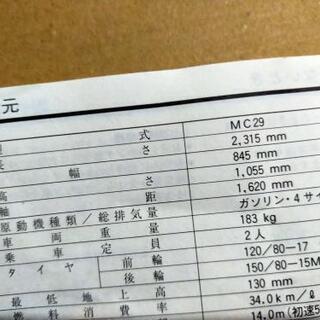 元
式 MC29
長 さ 2,315 mm
幅 845 mm
高 さ 1,055 mm
軸 距 1,620 mm
原動機種類／総排気量 ガソリン・4サイ
車 両 重 量 183 kg
乗 車 定 員 2人
タ イ ヤ 前 輪 120/80-17
後 輪 150/80-15M
最 低 地 上 高 130 mm
燃 料 消 費 率 34.0km/ℓ
14.0m (初速5